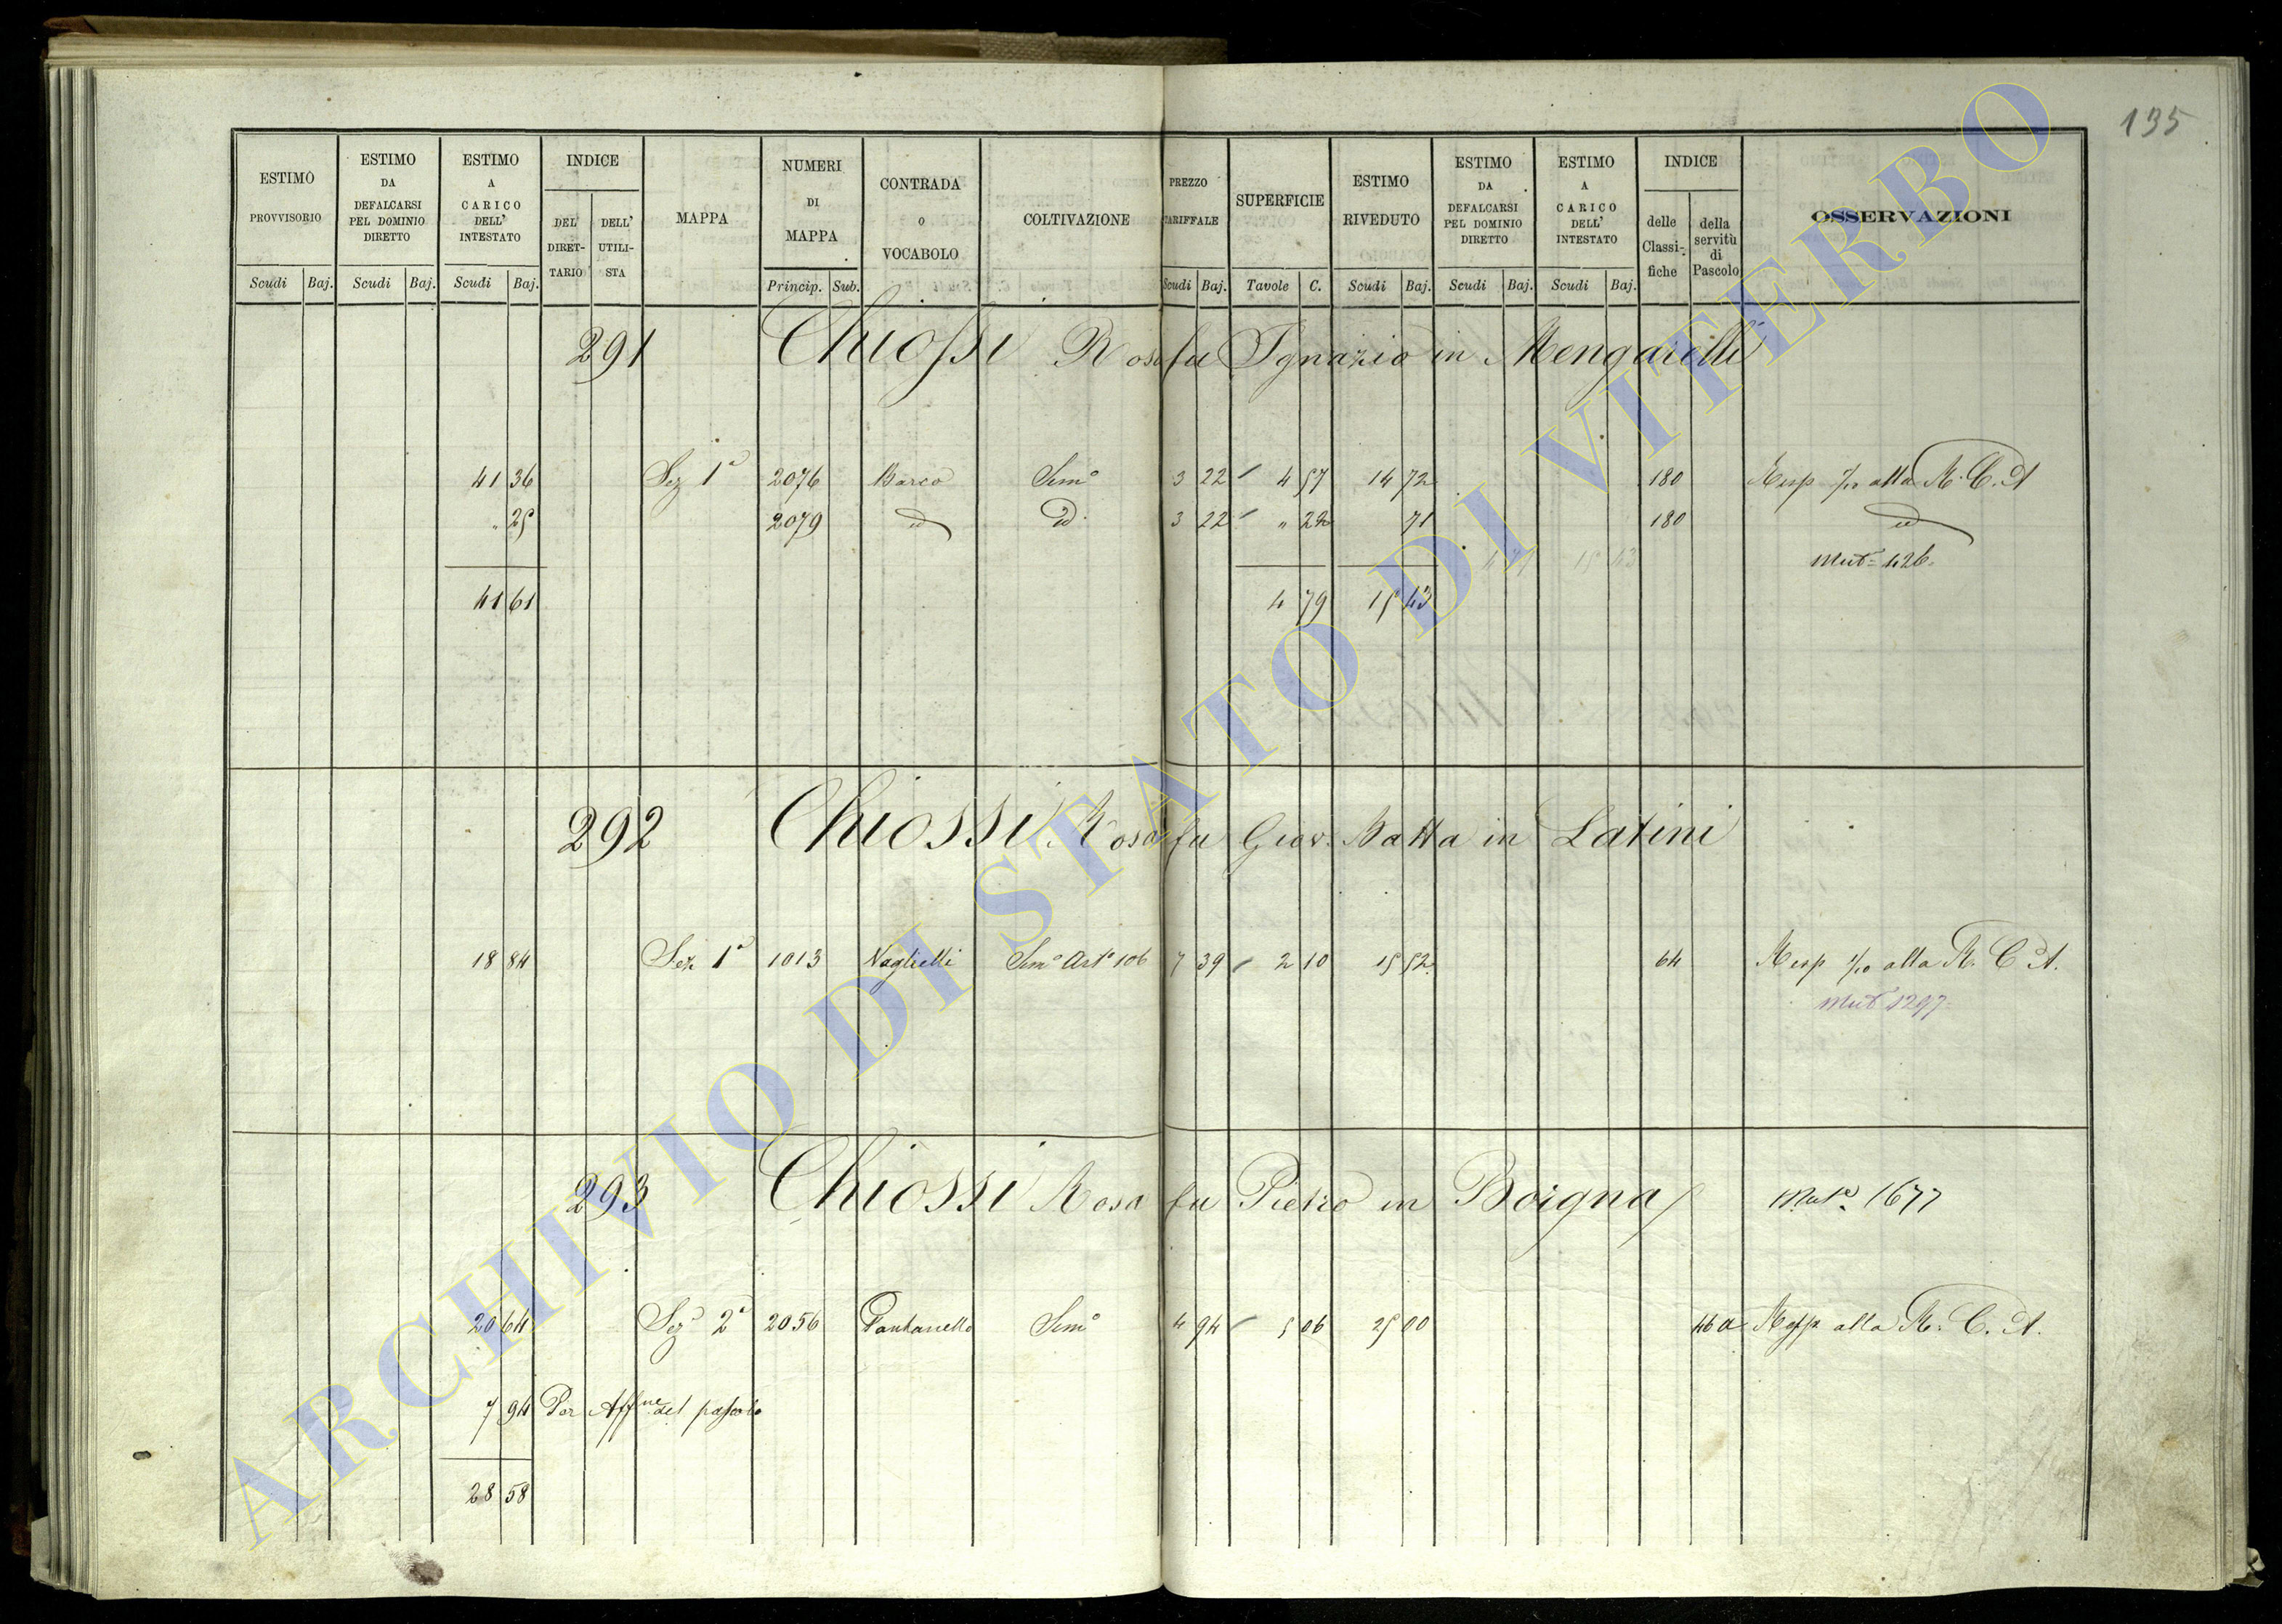 135
ESTIMO PROVVISORIO Scudi Baj.
ESTIMO DA DEFALCARSI PEL DOMINIO DIRETTO Scudi Baj.
ESTIMO A CARICO DELL' INTESTATO Scudi Baj.
INDICE DEL DIRET-TARIO DELL' UTILI-STA
MAPPA
NUMERI DI MAPPA Princip. Sub.
CONTRADA O VOCABOLO
COLTIVAZIONE
PREZZO TARIFFALE Scudi Baj.
SUPERFICIE Tavole C.
ESTIMO RIVEDUTO Scudi Baj.
ESTIMO DA DEFALCARSI PEL DOMINIO DIRETTO Scudi Baj.
ESTIMO A CARICO DELL' INTESTATO Scudi Baj.
INDICE delle Classi-fiche della servitù di Pascolo
OSSERVAZIONI
291 Chiossi Rosa fu Ignazio in Mengarelli
41 36 Sez 1a 2076 Barco Sem° 3 22 4 57 14 72 180 Risp 1/10 alla R. C. A
" 25 2079 id id. 3 22 " 22 71 180 id
15 43 Mut= 426.
41 61 4 79 15 43
292 Chiossi Rosa fu Giov. Batta in Latini
18 84 Sez 1a 1013 Naglietti Sem° Art° 106 7 39 2 10 15 52 64 Risp 1/10 alla R. C A.
Mut 1297
293 Chiossi Rosa fu Pietro in Boigna Muta 1677
20 64 Sez 2a 2056 Pantanello Sem° 4 94 5 06 25 00 46 a Resp. alla R. C. A.
7 94 Per Affne del pascolo
28 58
ARCHIVIO DI STATO DI VITERBO